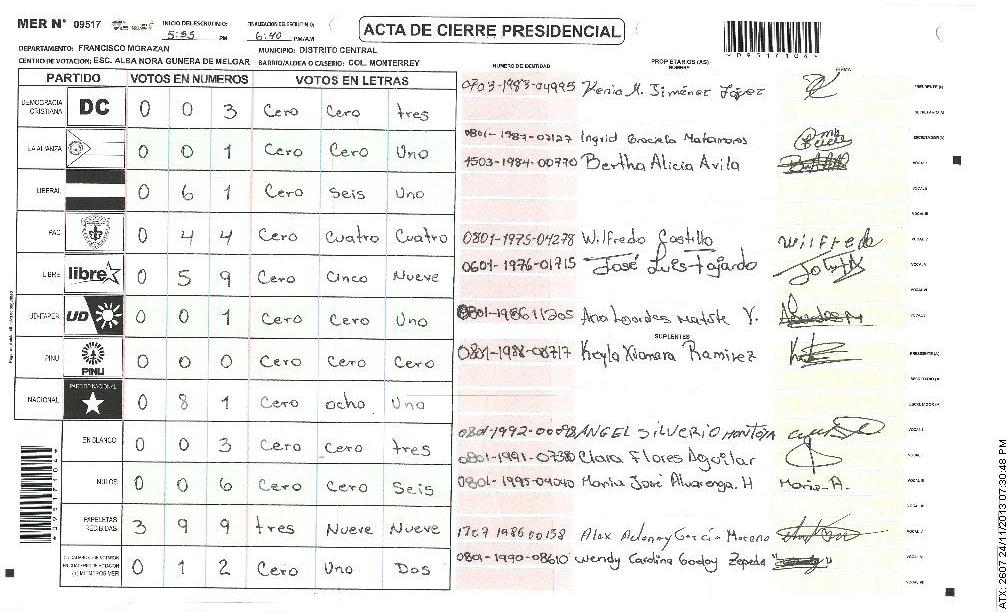 MER N° 09517
INICIO DEL ESCRUTINIO: 5:55 PM
FINALIZACION ESCRUTINIO: 6:40 PM/AM
ACTA DE CIERRE PRESIDENCIAL
*09517104*
DEPARTAMENTO: FRANCISCO MORAZAN
MUNICIPIO: DISTRITO CENTRAL
CENTRO DE VOTACION: ESC. ALBA NORA GUNERA DE MELGAR BARRIO/ALDEA O CASERIO: COL. MONTERREY
NUMERO DE IDENTIDAD PROPIETARIOS (AS) NOMBRE FIRMA
PARTIDO VOTOS EN NUMEROS VOTOS EN LETRAS
DEMOCRACIA CRISTIANA DC 0 0 3 Cero Cero tres
LA ALIANZA 0 0 1 Cero Cero Uno
LIBERAL 0 6 1 Cero Seis Uno
PAC 0 4 4 Cero Cuatro Cuatro
LIBRE libre 0 5 9 Cero Cinco Nueve
UD-FAPER UD 0 0 1 Cero Cero Uno
PINU PINU 0 0 0 Cero Cero Cero
NACIONAL PARTIDO NACIONAL 0 8 1 Cero ocho Uno
EN BLANCO 0 0 3 Cero Cero tres
NULOS 0 0 6 Cero Cero Seis
PAPELETAS RECIBIDAS 3 9 9 tres Nueve Nueve
0 1 2 Cero Uno Dos
0703-1983-04995 Kenia M. Jiménez López PRESIDENTE (A)
SECRETARIO (A)
0801-1987-07127 Ingrid Graciela Matamoros
1503-1984-00770 Bertha Alicia Avila VOCAL I
VOCAL II
VOCAL III
0801-1975-04278 Wilfredo Castillo Wilfredo
0601-1976-01715 José Luis Fajardo VOCAL V
VOCAL VI
0801-1986 11205 Ana Lourdes V.
SUPLENTES
0801-1988-08717 Keyla Xiomara Ramirez PRESIDENTE (A)
SECRETARIO (A)
0801-1992-00098 ANGEL SILVERIO MONTOYA VOCAL I
0801-1991-07380 Clara Flores Aguilar
0801-1995-04040 Maria José Alvarenga. H Maria A.
1707 1986 00138 Alex Adonny García Moreno
0801-1990-08610 Wendy Carolina Godoy Zepeda
ATX: 2607 24/11/2013 07:30:48 PM